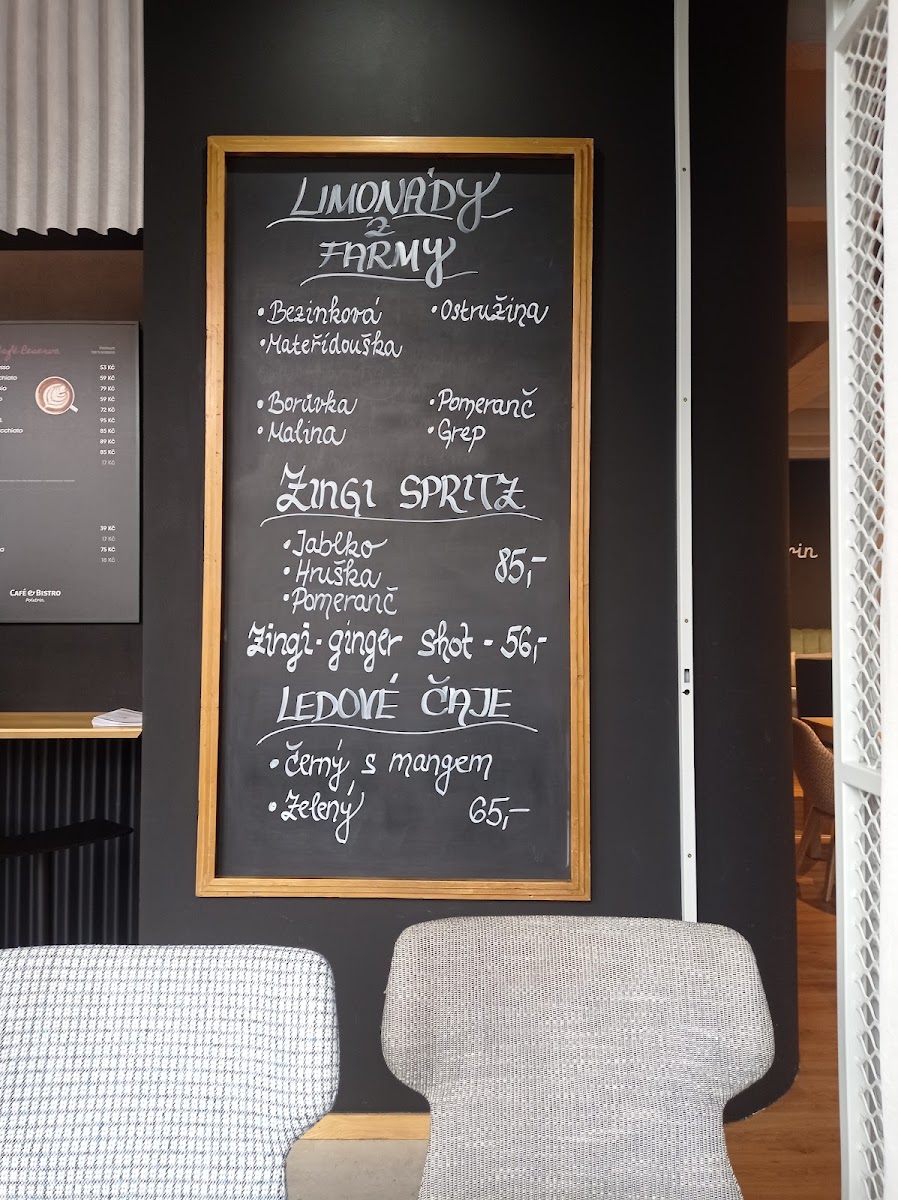 LIMONÁDY
Z
FARMY
• Bezinková
• Ostružina
• Mateřídouška
• Borůvka
• Pomeranč
• Malina
• Grep
ZINGI SPRITZ
• Jablko
• Hruška
85,-
• Pomeranč
Zingi - ginger shot - 56,-
LEDOVÉ ČAJE
• Černý s mangem
• Zelený
65,-
53 Kč
59 Kč
79 Kč
59 Kč
72 Kč
95 Kč
85 Kč
89 Kč
85 Kč
17 Kč
39 Kč
17 Kč
75 Kč
18 Kč
CAFÉ & BISTRO